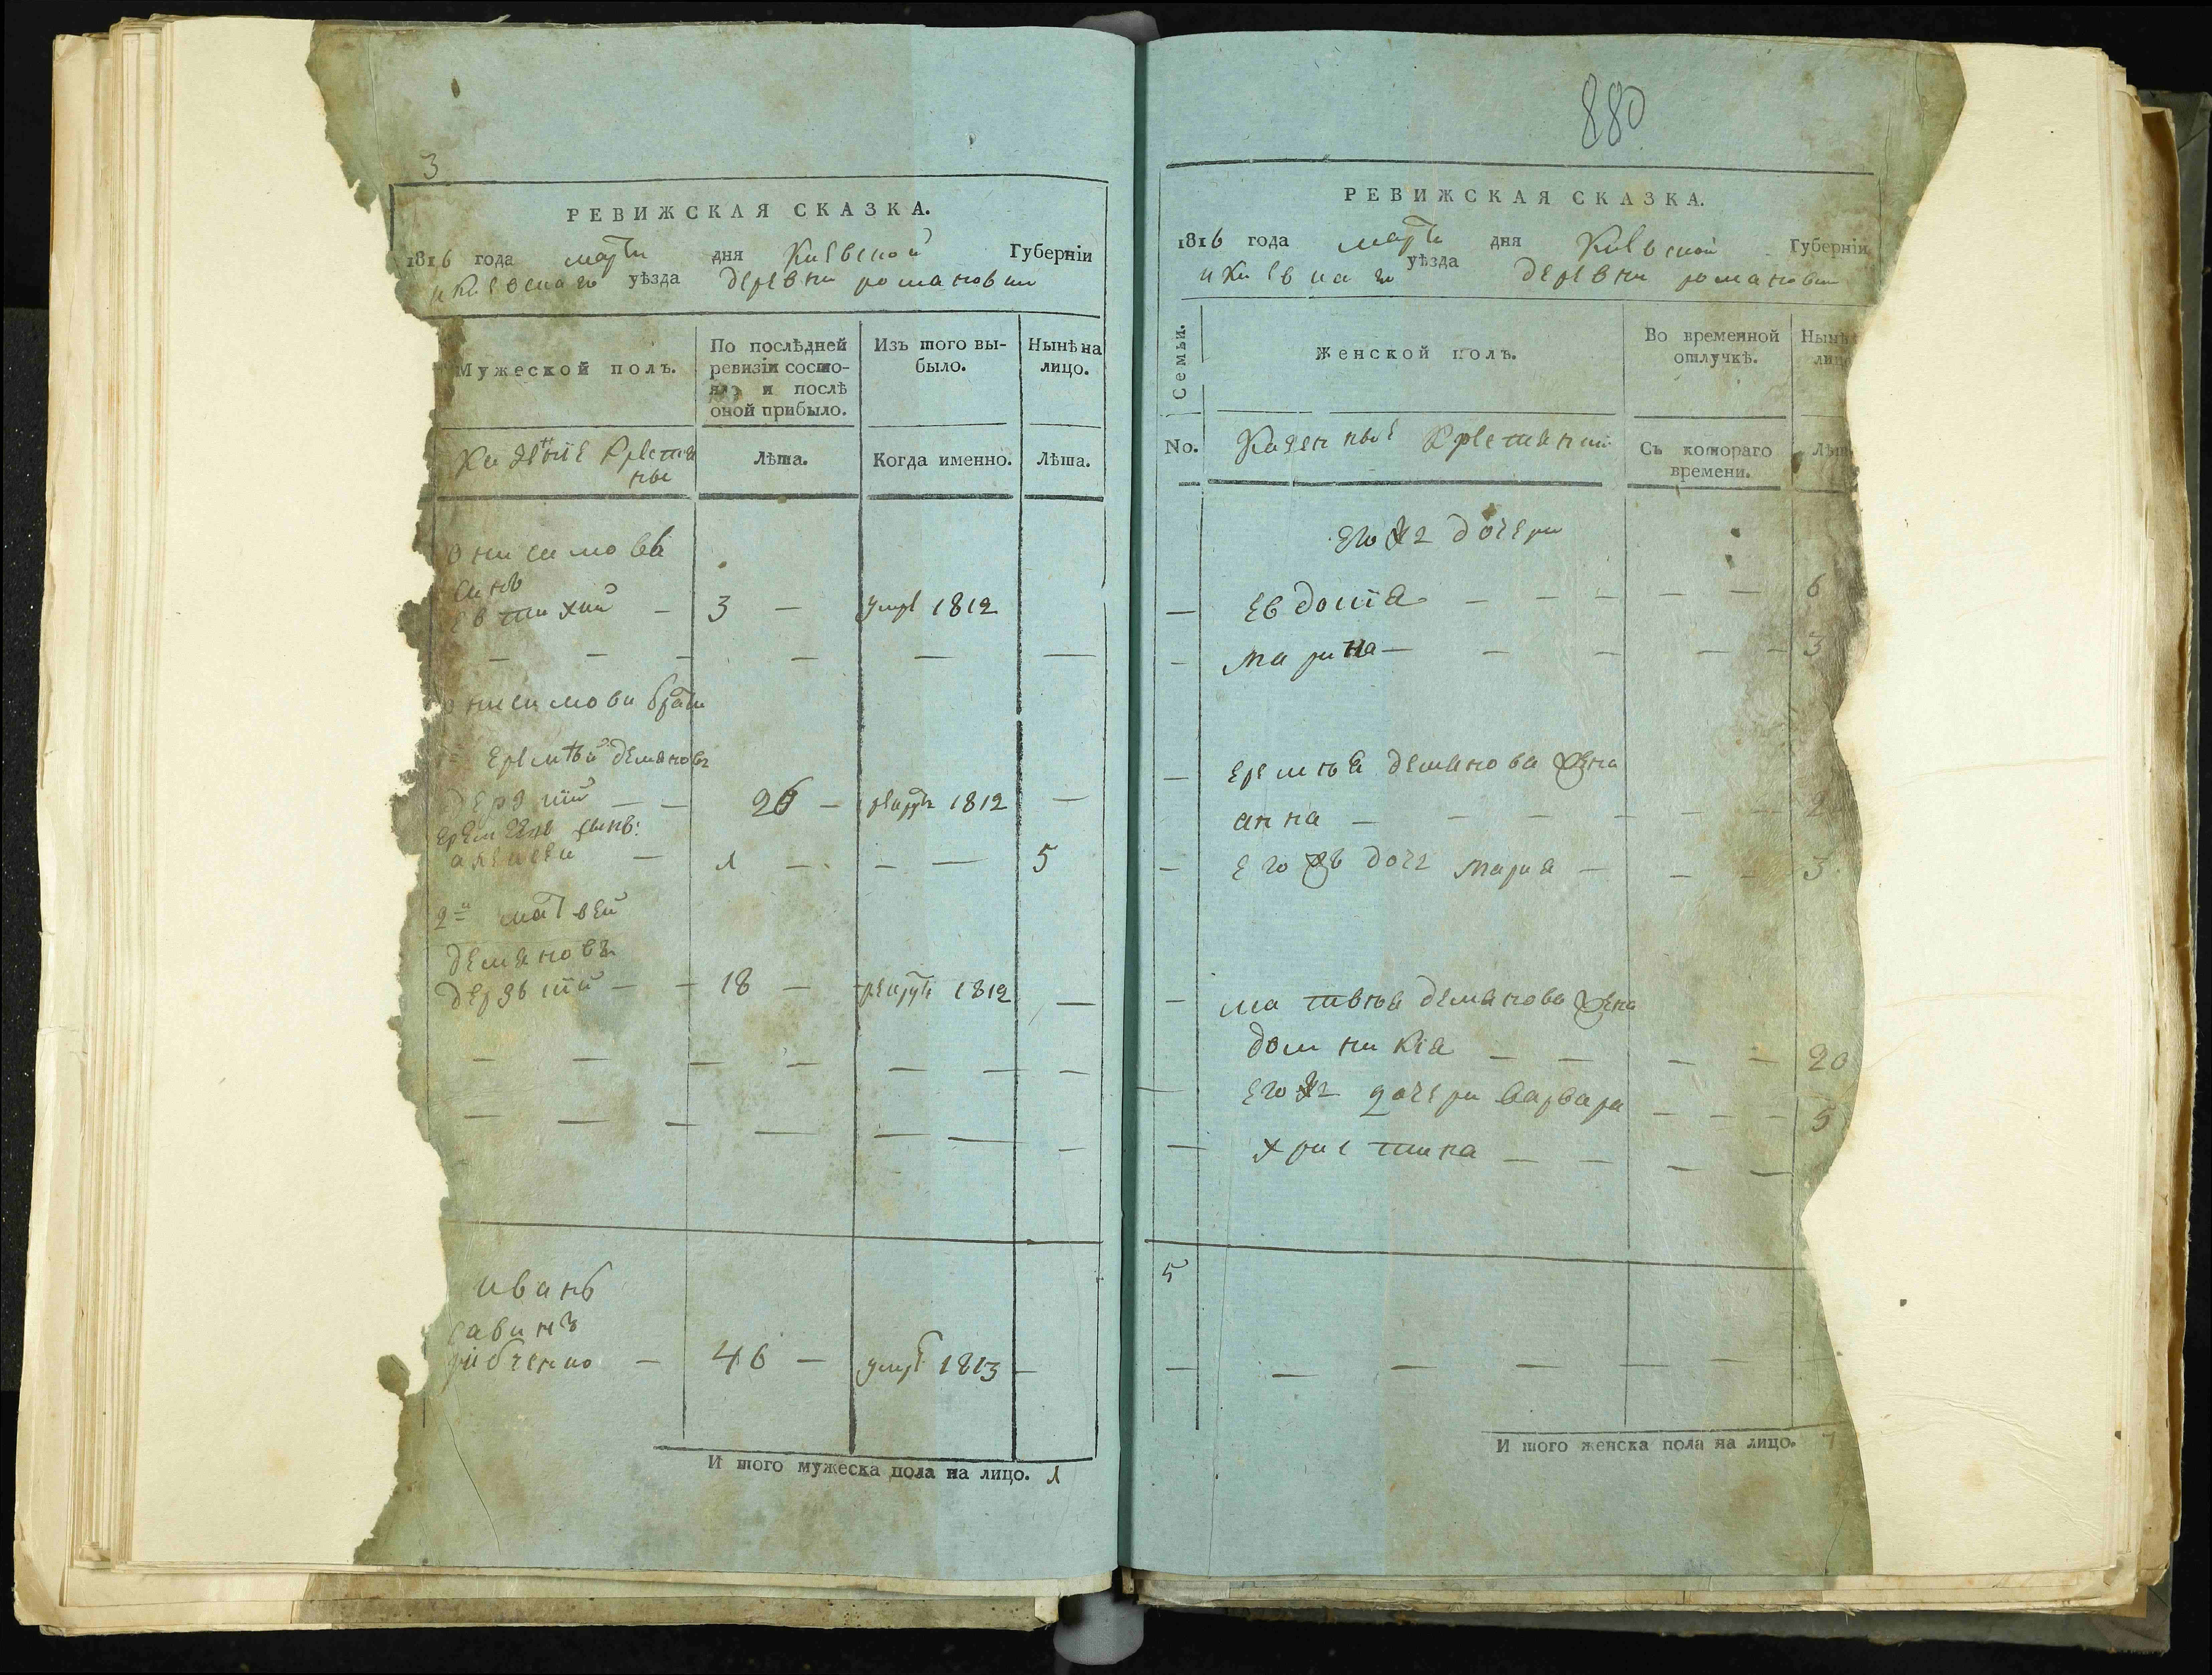 3
РЕВИЖСКАЯ СКАЗКА.
1816 года марта дня Киевской Губерніи
и Киевскаго уѣзда деревни романовки
Мужеской полъ.
По послѣдней ревизіи состоя- и послѣ оной прибыло.
Изъ того выбыло.
Нынѣ на лицо.
Казенніе Крестяне
Лѣта.
Когда именно.
Лѣта.
Онисимовъ
синъ
Евтихий — 3 — умре 1812
Онисимови брати
Еремѣй демяновъ
26 — рекрутъ 1812 —
Еремеевъ сынъ:
алексеи — 1 — — — 5
2й матвей
демяновъ
18 — рекрутъ 1812 —
иванъ
савинъ
46 — умре 1813 —
И того мужеска пола на лицо. 1
880
РЕВИЖСКАЯ СКАЗКА.
1816 года марта дня Киевской Губерніи
и Киевскаго уѣзда деревни романовки
Семьи.
Женской полъ.
Во временной отлучкѣ.
Нынѣ
No.
Казенные Крестянки
Съ котораго времени.
его жъ дочери
— Евдокія — — — — — 6
— Марина — — — — — 3
— Еремѣя демянова жена
анна — — — — — —
— Его жъ дочъ Мария — — — 3
— матвѣя демянова жена
домникія — — — — 20
— Его жъ дочери варвара — — — 5
— христина — — — —
5
— — — — —
И того женска пола на лицо. 7